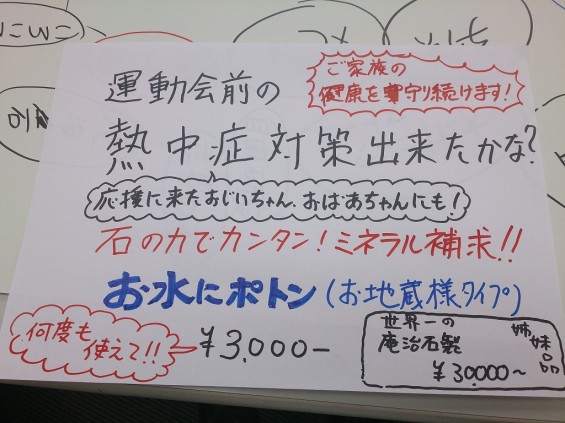 運動会前の
ご家族の
健康を守り続けます!
熱中症対策出来たかな?
応援に来たおじいちゃん、おばあちゃんにも!
石の力でカンタン!ミネラル補求!!
お水にポトン(お地蔵様タイプ)
何度も
使えて!!
¥3,000-
世界一の
庵治石製
姉妹品
¥30,000~